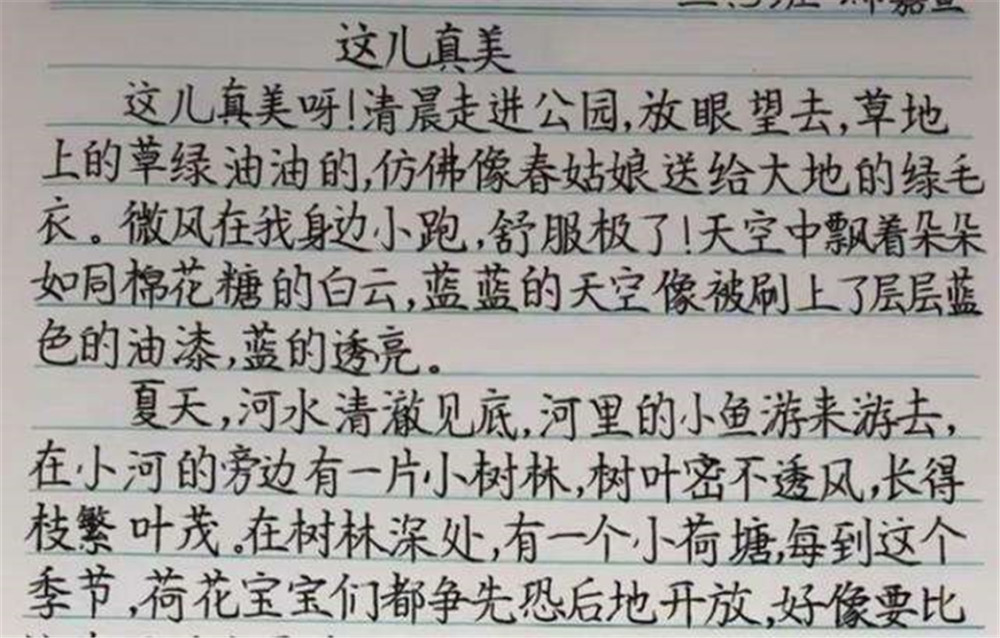 这儿真美
这儿真美呀！清晨走进公园，放眼望去，草地
上的草绿油油的，仿佛像春姑娘送给大地的绿毛
衣。微风在我身边小跑，舒服极了！天空中飘着朵朵
如同棉花糖的白云，蓝蓝的天空像被刷上了层层蓝
色的油漆，蓝的透亮。
夏天，河水清澈见底，河里的小鱼游来游去，
在小河的旁边有一片小树林，树叶密不透风，长得
枝繁叶茂。在树林深处，有一个小荷塘，每到这个
季节，荷花宝宝们都争先恐后地开放，好像要比